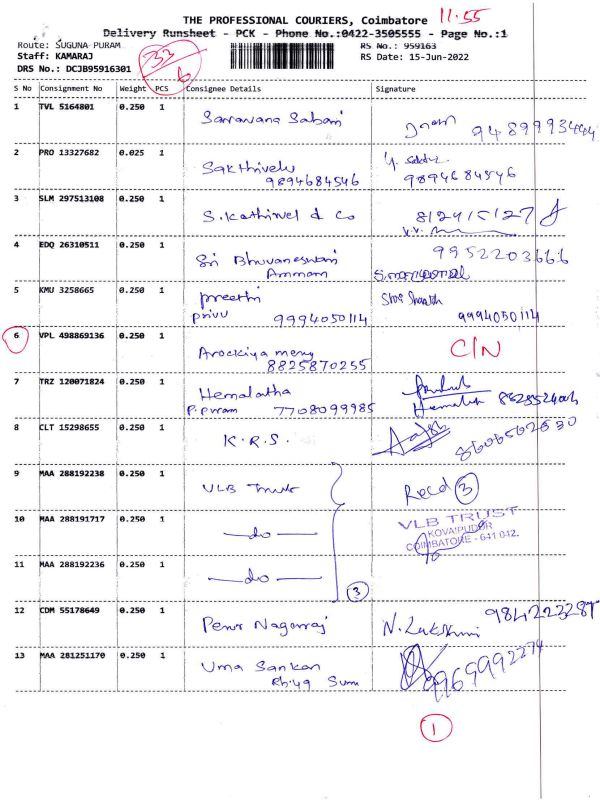 11.55
THE PROFESSIONAL COURIERS, Coimbatore
Delivery Runsheet - PCK - Phone No.:0422-3505555 - Page No.:1
Route: SUGUNA PURAM
Staff: KAMARAJ
DRS No.: DCJB95916301
33
6
RS No.: 959163
RS Date: 15-Jun-2022
S No Consignment No Weight PCS Consignee Details Signature
1 TVL 5164801 0.250 1 Saravana Sabari
2 PRO 13327682 0.025 1 Sakthivelu
9894684546 9894684546
3 SLM 297513108 0.250 1 S. Kathirvel & Co 812415127
4 EDQ 26310511 0.250 1 Sri Bhuvaneswari 9952203666
Ammam
5 KMU 3258665 0.250 1 Preethi
privu 9994050114 9994050114
6 VPL 498869136 0.250 1 Arockiya mery C/N
8825870255
7 TRZ 120071824 0.250 1 Hemalatha
P.puram 7708099985
8 CLT 15298655 0.250 1 K.R.S. 8606502630
9 MAA 288192238 0.250 1 VLB Trust Recd 3
10 MAA 288191717 0.250 1 do
VLB TRUST
KOVAIPUDUR
COIMBATORE - 641 042.
11 MAA 288192236 0.250 1 do
3
12 CDM 55178649 0.250 1 Perur Nagarraj N. Lakshmi
13 MAA 281251170 0.250 1 Uma Sankar
1